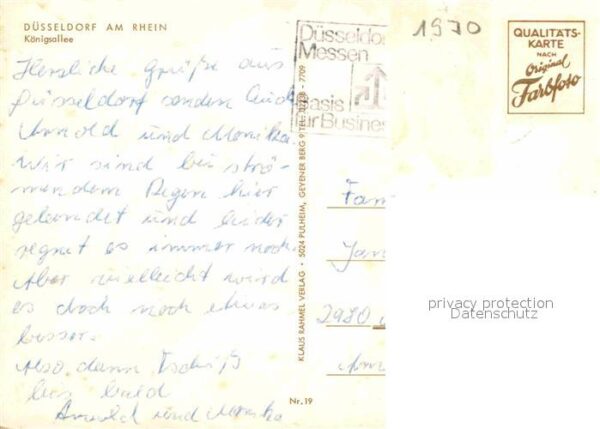 DÜSSELDORF AM RHEIN
Königsallee
Herzliche Grüße aus
Düsseldorf senden Euch
Arnold und Monika.
Wir sind bei strö-
mendem Regen hier
gelandet und leider
regnet es immer noch.
Aber vielleicht wird
es doch noch etwas
besser.
Also dann Tschüß
bis bald
Arnold und Monika
Düsseldor
Messen
Basis
für Busines
1970
QUALITÄTS-
KARTE
NACH
Original
Farbfoto
KLAUS RAHMEL VERLAG · 5024 PULHEIM, GEYENER BERG 9 TEL. - 7709
Fam
Jan
2980
Nr. 19
privacy protection
Datenschutz